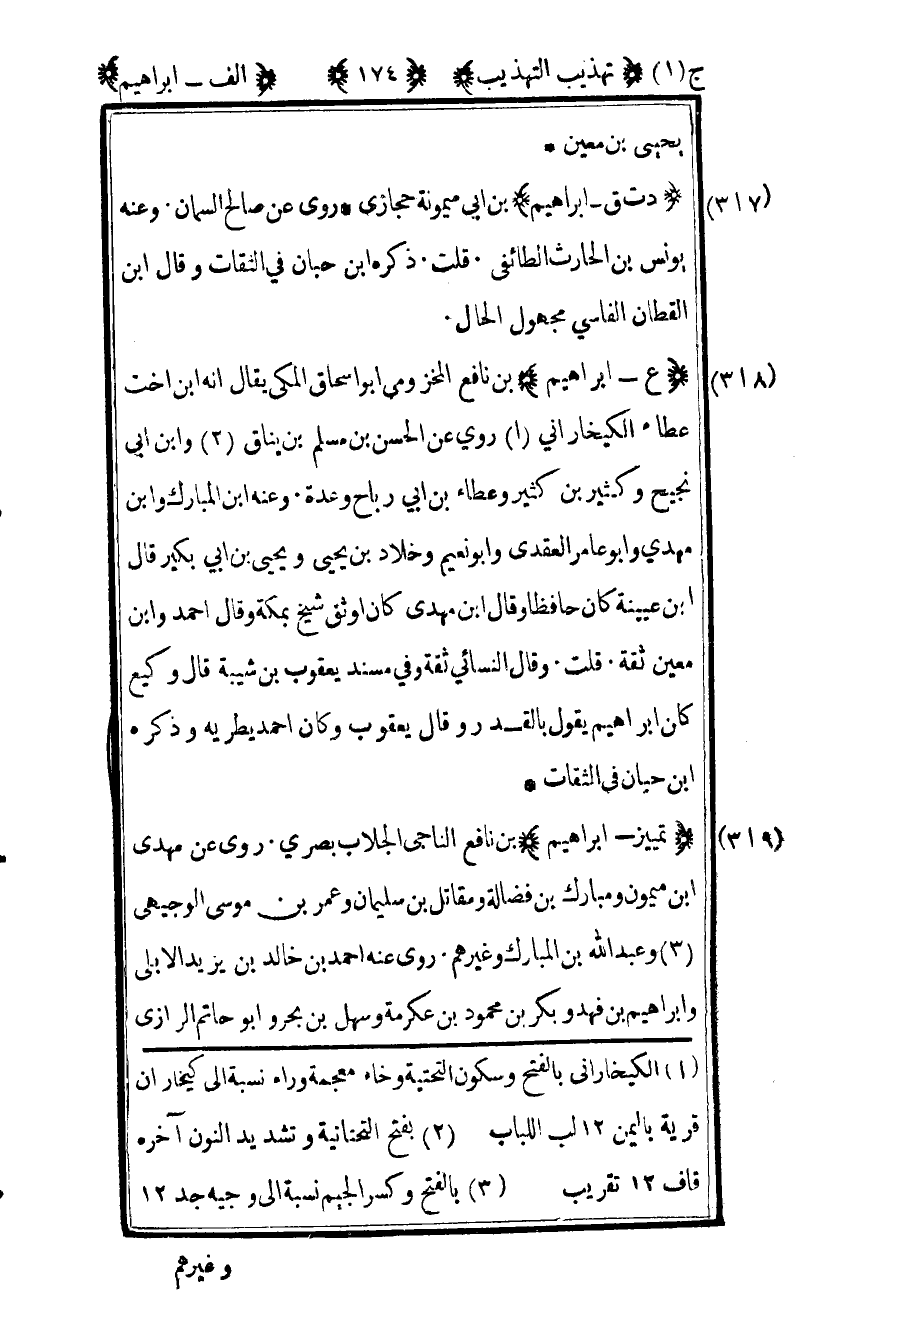 ج(١) ﴿ تهذيب التهذيب ﴾ ﴿ ١٧٤ ﴾ ﴿ الف ـ ابراهيم ﴾
يحيى بن معين *
(٣١٧) ﴿ دت ق ـ ابراهيم ﴾ بن ابي ميمونة حجازى * روى عن صالح السمان · وعنه
يونس بن الحارث الطائفى · قلت · ذكره ابن حبان في الثقات و قال ابن
القطان الفاسي مجهول الحال ·
(٣١٨) ﴿ ع ـ ابراهيم ﴾ بن نافع المخزومي ابو اسحاق المكى يقال انه ابن اخت
عطاء الكيخاراني (١) روي عن الحسن بن مسلم بن يناق (٢) وابن ابي
نجيح و كثير بن كثير وعطاء بن ابي رباح وعدة · وعنه ابن المبارك وابن
مهدي وابو عامر العقدى وابو نعيم وخلاد بن يحيى و يحيى بن ابي بكير قال
ابن عيينة كان حافظا وقال ابن مهدى كان اوثق شيخ بمكة وقال احمد وابن
معين ثقة · قلت · وقال النسائي ثقة وفي مسند يعقوب بن شيبة قال وكيع
كان ابراهيم يقول بالقـدر و قال يعقوب وكان احمد يطريه و ذكره
ابن حبان في الثقات *
(٣١٩) ﴿ تمييز ـ ابراهيم ﴾ بن نافع الناجى الجلاب بصري · روى عن مهدى
ابن ميمون ومبارك بن فضالة ومقاتل بن سليمان وعمر بن موسى الوجيهى
(٣) وعبد الله بن المبارك وغيرهم · روى عنه احمد بن خالد بن يزيد الابلى
وابراهيم بن فهد و بكر بن محمود بن عكرمة وسهل بن بحر و ابو حاتم الرازى
(١) الكيخارانى بالفتح وسكون التحتية وخاء معجمة وراء نسبة الى كيخاران
قرية باليمن ١٢ لب اللباب (٢) بفتح التحتانية و تشديد النون آخره
قاف ١٢ تقريب (٣) بالفتح و كسر الجيم نسبة الى وجيه جد ١٢
وغيرهم